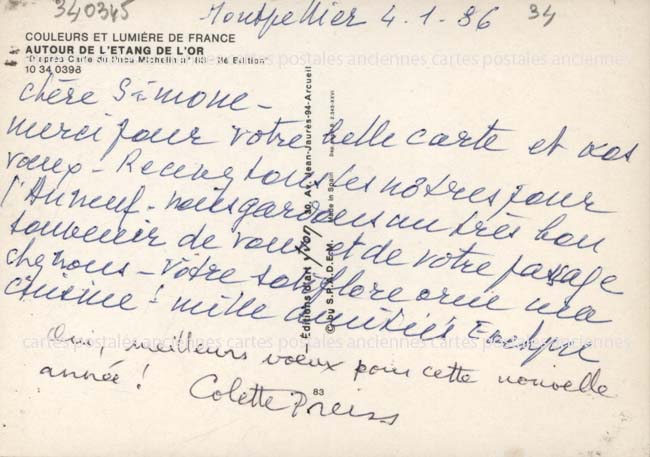 340345
Montpellier 4.1.86
34
COULEURS ET LUMIÈRE DE FRANCE
AUTOUR DE L'ETANG DE L'OR
"D'après Carte du Pneu Michelin n° 83 - 2è Edition"
10 34 0398
cartes postales anciennes cartes postales anciennes cartes postales anciennes
chère Simone -
merci pour votre belle carte et vos
voeux - Recevez tous les nôtres pour
l'An neuf - nous gardons un très bon
souvenir de vous et de votre passage
chez nous - votre saxiflore orne ma
cuisine ! mille amitiés Evelyne
Oui, meilleurs voeux pour cette nouvelle
année !
Colette Preiss
Editions d'art Yvon 30, Av. Jean-Jaurès-94-Arcueil
© by S.P.A.D.E.M.
Made in Spain
83